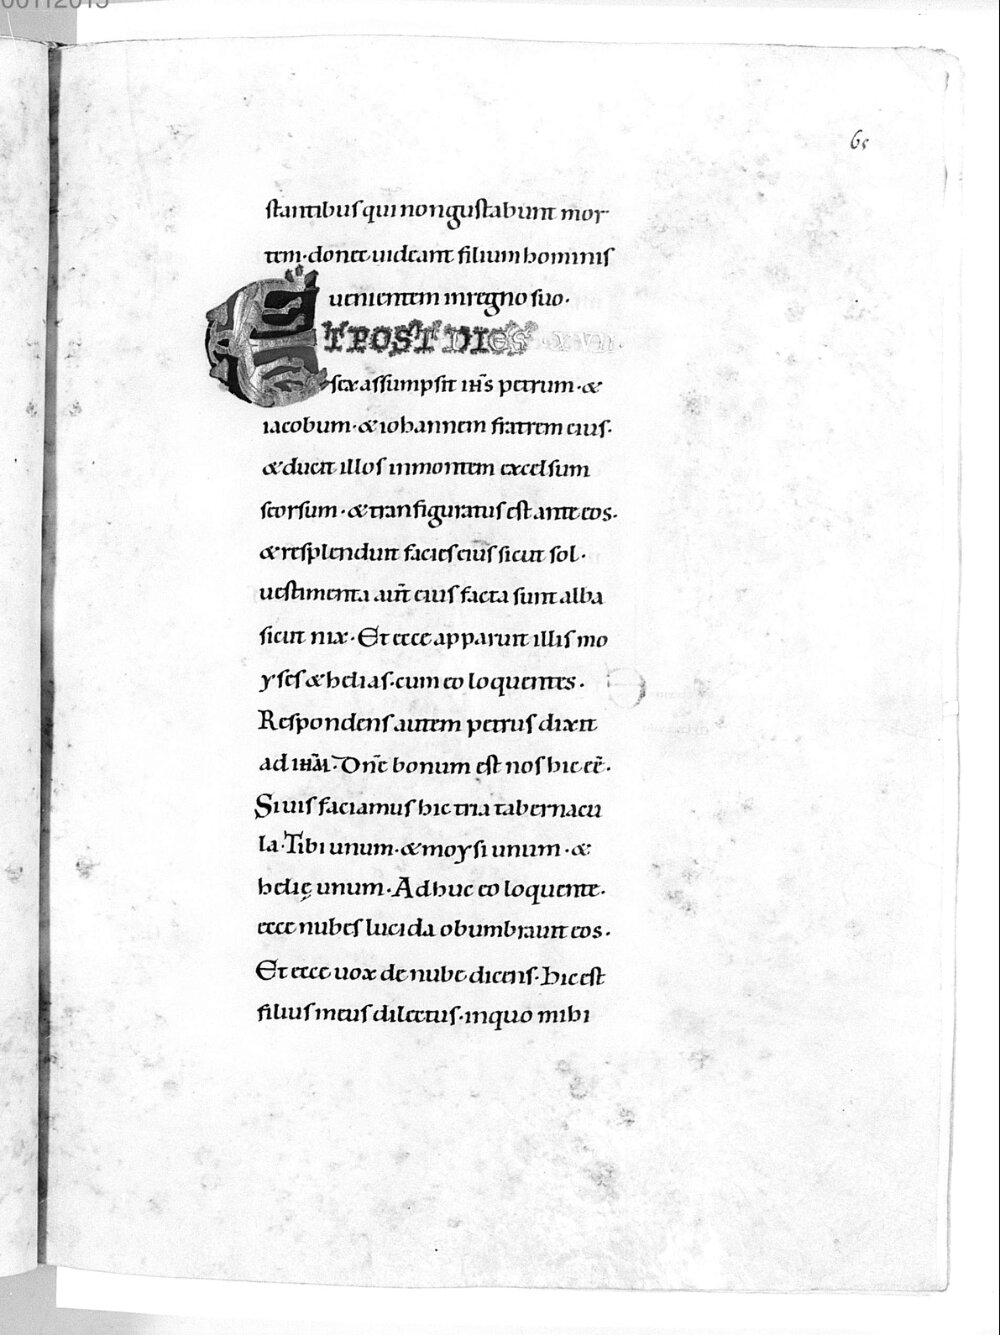 00112015
65
stantibus qui non gustabunt mor
tem· donec uideant filium hominis
uenientem in regno suo·
ET POST DIES XVII
sex assumpsit ihs̄ petrum· &
iacobum· & iohannem fratrem eius·
& ducit illos in montem excelsum
seorsum· & transfiguratus est ante eos·
& resplenduit facies eius sicut sol·
uestimenta aut̄ eius facta sunt alba
sicut nix· Et ecce apparuit illis mo
yses & helias· cum eo loquentes·
Respondens autem petrus dixit
ad ihm̄· Dnē bonum est nos hic eē·
Si uis faciamus hic tria tabernacu
la· Tibi unum· & moysi unum· &
helię unum· Adhuc eo loquente·
ecce nubes lucida obumbrauit eos·
Et ecce uox de nube dicens· Hic est
filius meus dilectus· in quo mihi